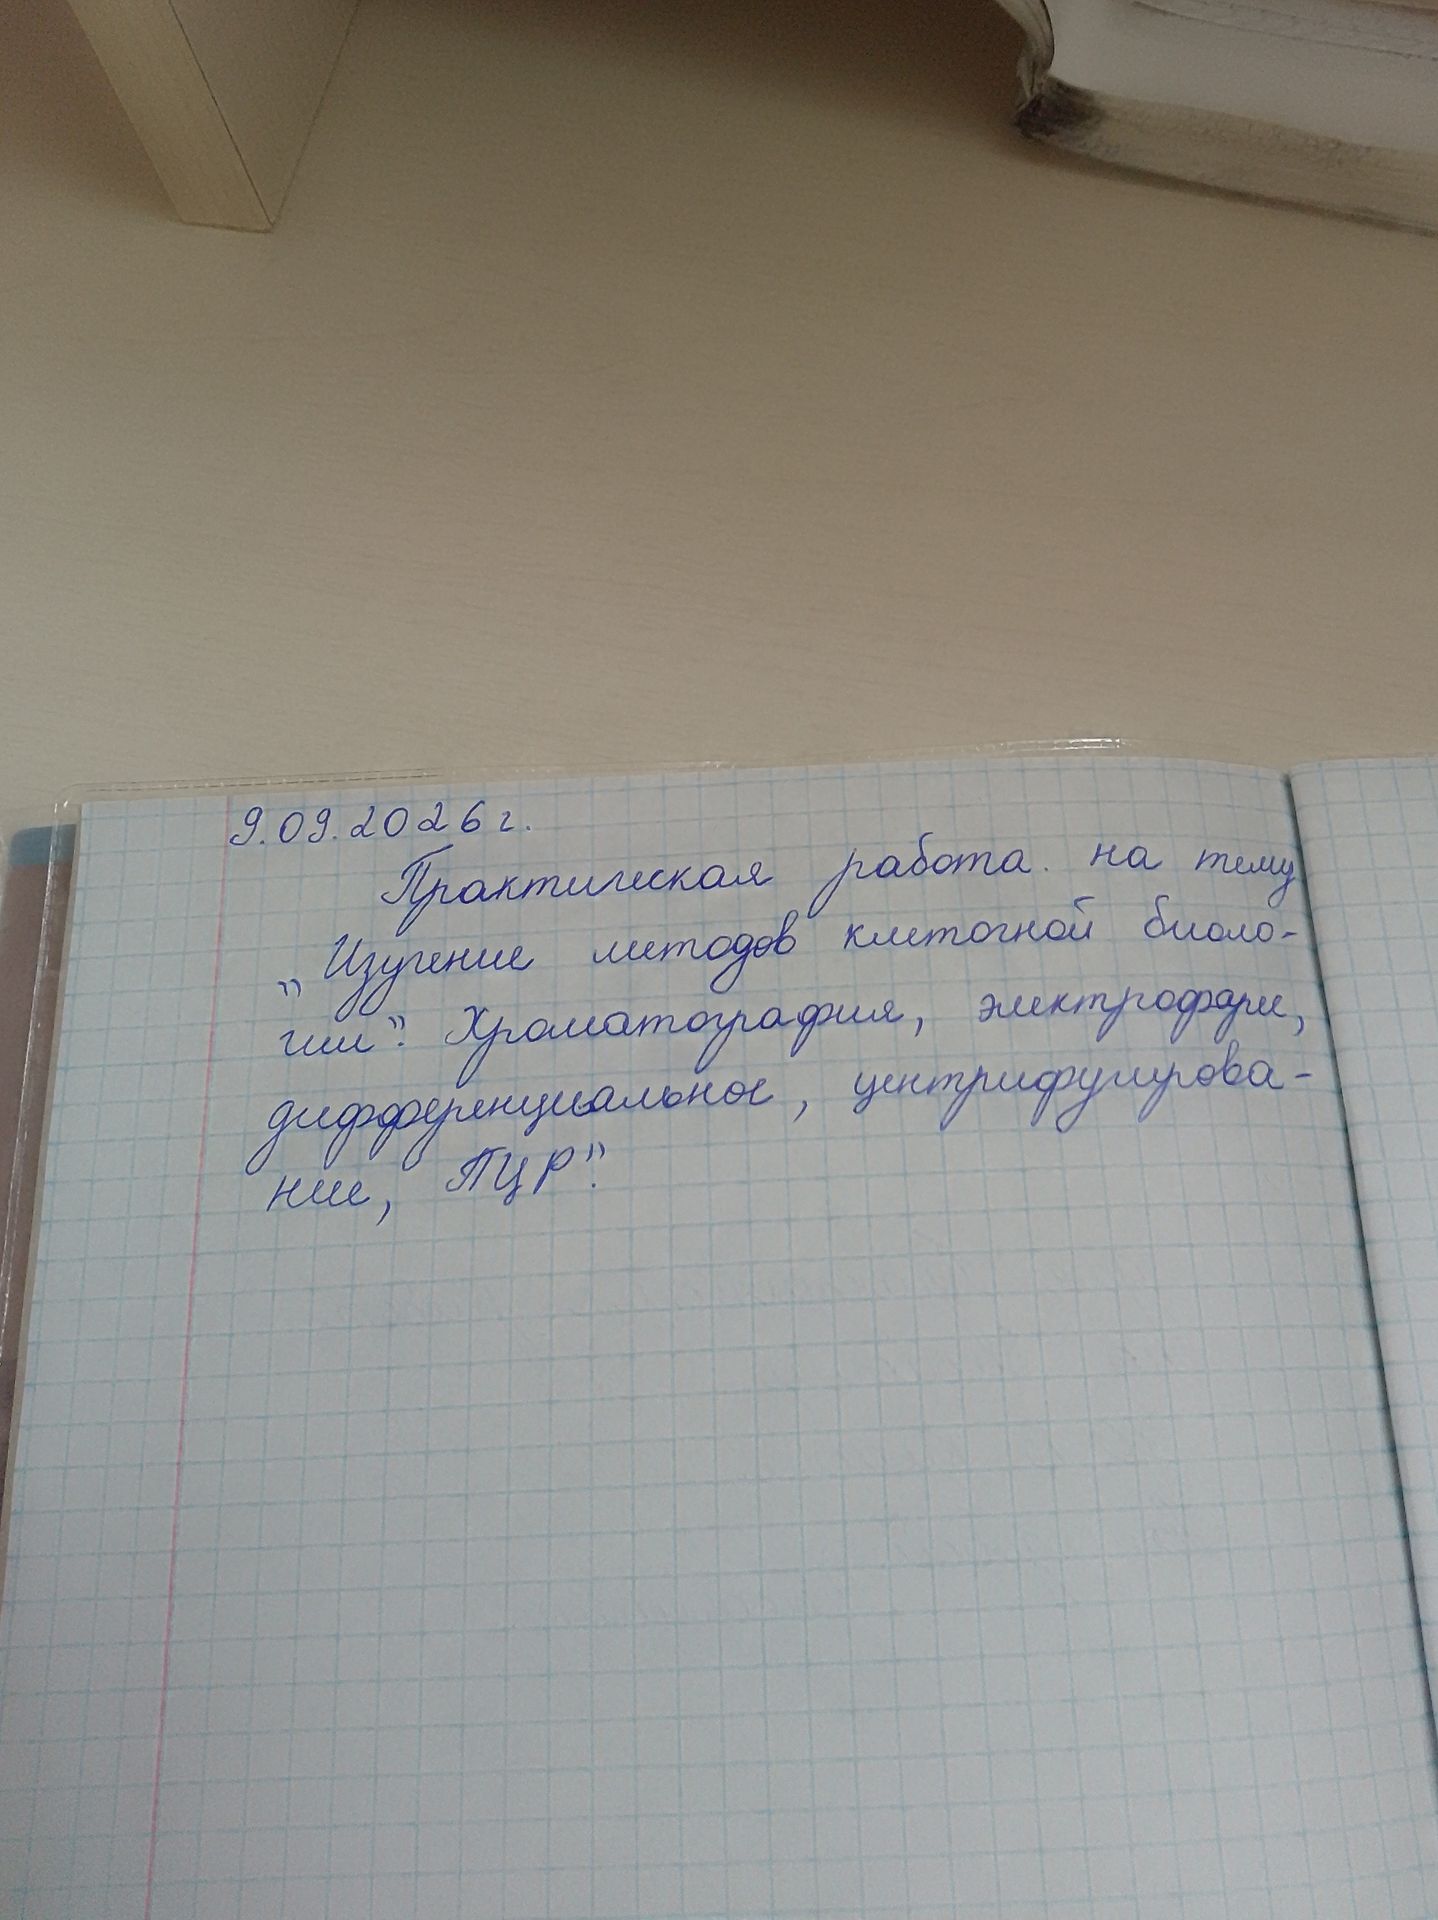 9.09.2026 г.
Практическая работа на тему
„Изучение методов клеточной биоло-
гии". Хроматография, электрофорез,
дифференциальное, центрифугирова-
ние, ПЦР".